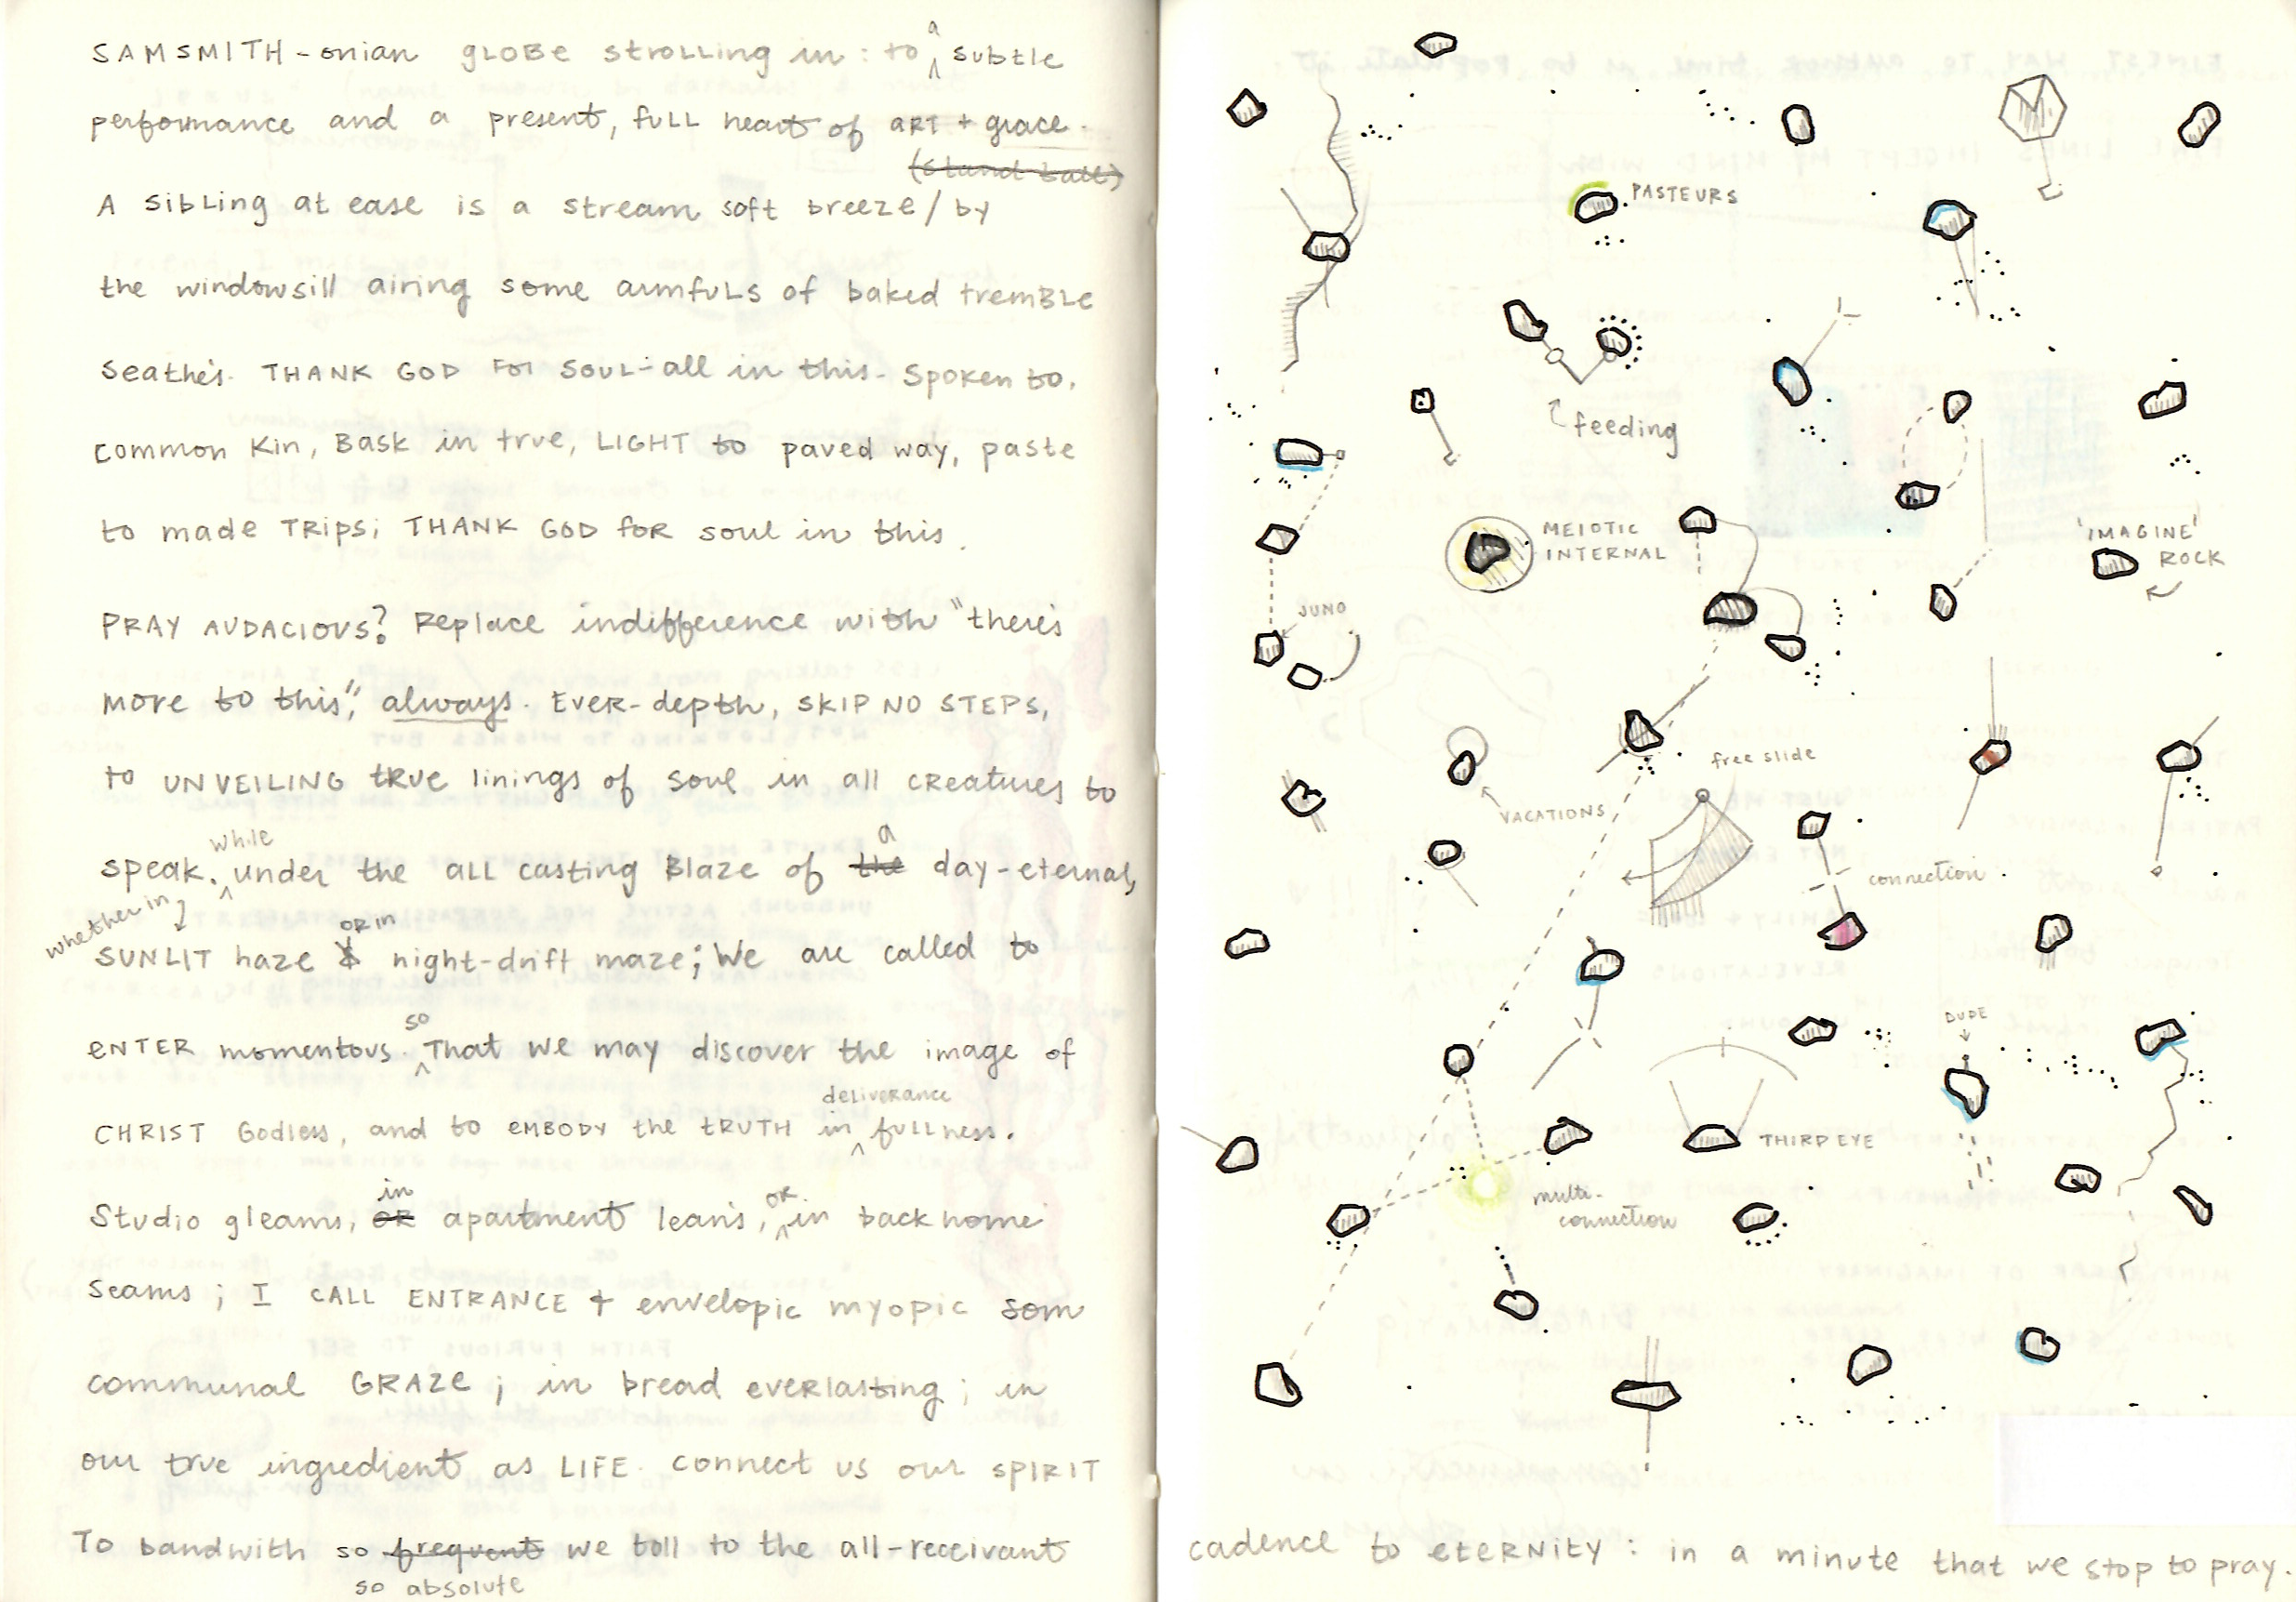 SAMSMITH-onian GLOBE strolling in : to a subtle
performance and a present, full heart of ART + grace.
(stand ball)
A sibling at ease is a stream soft breeze / by
the windowsill airing some armfuls of baked tremble
seathe's. THANK GOD FOR SOUL-all in this. Spoken to,
common Kin, Bask in true, LIGHT to paved way, paste
to made TRIPS; THANK GOD for soul in this.
PRAY AUDACIOUS? Replace indifference with "there's
more to this", always. EVER-depth, SKIP NO STEPS,
to UNVEILING true linings of soul in all creatures to
speak. while under the all casting Blaze of the a day-eternal,
whether in SUNLIT haze & or in night-drift maze; we are called to
ENTER momentous. so That we may discover the image of
CHRIST Godless, and to EMBODY the TRUTH in deliverance fullness.
Studio gleams, OR in apartment leans, or in back home
seams ; I CALL ENTRANCE + envelopic myopic som
communal GRAZE ; in bread everlasting ; in
our true ingredient as LIFE. connect us our SPIRIT
To bandwith so frequent we toll to the all-receivant
so absolute
PASTEURS
feeding
MEIOTIC
INTERNAL
'IMAGINE'
ROCK
JUNO
free slide
VACATIONS
connection
DUDE
THIRD EYE
multi-
connection
cadence to ETERNITY : in a minute that we stop to pray.